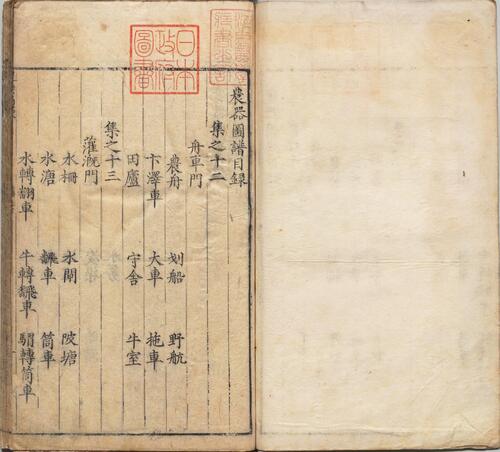 農器圖譜目錄
集之十二
舟車門
農舟 划船 野航
下澤車 大車 拖車
田廬 守舍 牛室
集之十三
灌漑門
水柵 水閘 陂塘
水塘 翻車 筒車
水轉翻車 牛轉翻車 驢轉筒車
日本
政府
圖書